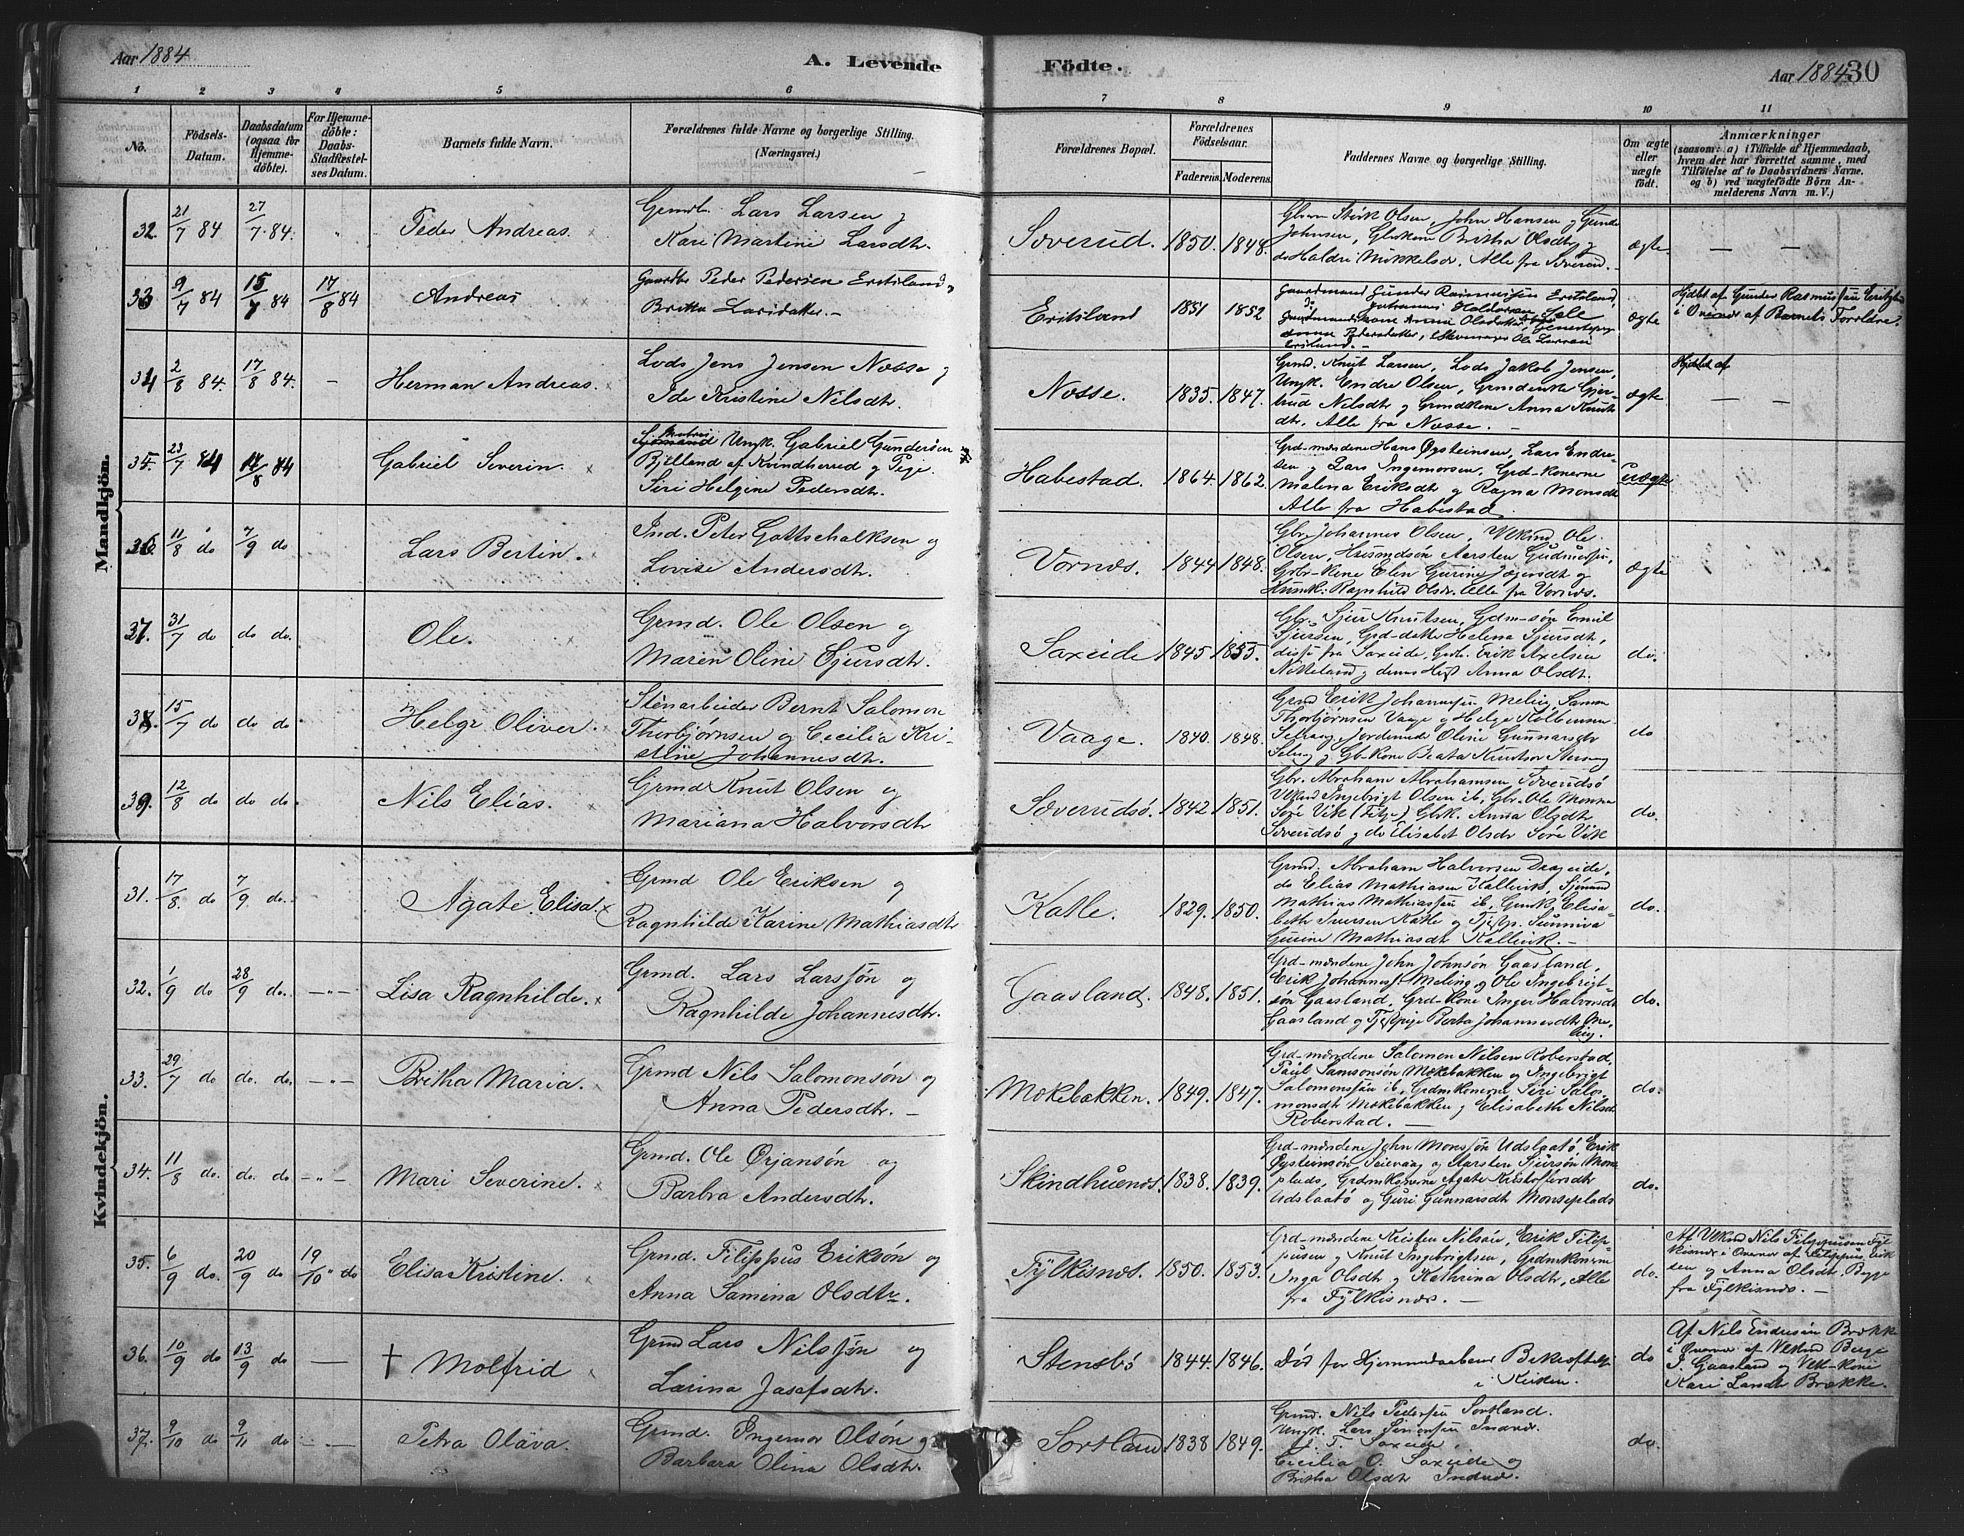 Aar 1884
A. Levende
Födte.
Aar 1884
30
1 2 3 4 5 6 7 8 9 10 11
No.
Födsels-
Datum.
Daabsdatum
(ogsaa for
Hjemme-
döbte).
For Hjemme-
döbte:
Daabs-
Stadfæstel-
ses Datum.
Barnets fulde Navn.
Forældrenes fulde Navne og borgerlige Stilling.
(Næringsvei.)
Forældrenes Bopæl.
Forældrenes
Födselsaar.
Faderens. Moderens.
Faddernes Navne og borgerlige Stilling.
Om ægte
eller
uægte
födt.
Anmærkninger
(saasom: a) i Tilfælde af Hjemmedaab,
hvem der har forrettet samme, med
Tilföielse af to Daabsvidners Navne.
og b) ved uægtefödte Börn An-
melderens Navn m. V.)
Mandkjön.
32. 21/7 84 27/7 84. Peder Andreas
Grmdb. Lars Larsen og
Kari Martine Larsdtr.
Soverud. 1850. 1848.
Gbrm Størk Olsen, John Hansen og Gunder
Johnsen, Gbrkone Britha Olsdtr og
do Haldri Mikkelsdr. Alle fra Soverud.
ægte — —
33 9/7 84 15/7 84 17/8 84 Andreas
Gaardbr Peder Pedersen Eritsland og
Britha Larsdatter. —
Eritsland 1851 1852
Gaardmand Gunder Rasmussen Eritsland,
do Johannes Haldorsen Sele
Gaardmandskone Anna Olsdatter
Pedersdatter, Ole Larsen
Eritsland. —
ægte
Hjdbt. af Gunder Rasmussen Eritsland
i Overvær af Barnets Forældre.
34 2/8 84. 17/8 84. — Herman Andreas.
Lods Jens Jensen Nosse og
Ide Kristine Nilsdtr.
Nosse. 1835. 1847.
Grmd. Knut Larsen, Lods Jakob Jensen,
Ungk. Endre Olsen, Grmdenke Gjer-
trud Nilsdtr og Grmdkone Anna Knuts-
dtr. Alle fra Nosse. —
ægte
Hjdbt af
— —
35. 23/7 84 17/8 84 Gabriel Severin.
Matros Ungk. Gabriel Gundersøn
Bjelland af Kvindherred og Pige
Siri Helgine Pedersdtr.
Habestad. 1864. 1862.
Grd-mændene Hans Øysteinsen, Lars Endre-
sen og Lars Ingemorsen, Grd-konerne
Malena Eriksdtr og Ragna Monsdtr
Alle fra Habestad.
Uægte
36. 11/8 do 7/9 do Lars Bertin.
Ind. Peter Gottschalksen og
Lovise Andersdtr.
Vornæs. 1844 1848.
Gbr. Johannes Olsen, Vlkmd Ole
Olsen, Husmdsøn Aarsten Gudmundsen,
Grbr-kone Elen Gurine og
Husmk. Ragnhild Olsdr. Alle fra Vornæs.
ægte
37. 31/7 do do do. Ole.
Grmd. Ole Olsen og
Maren Oline Sjursdtr.
Saxeide 1845 1855.
Gbr. Sjur Knutsen, Gdm-søn Emil
Sjursen, Grd-datter Helena Sjursdtr,
disse fra Saxeide, Grbr. Erik Axelsen
Notteland og dennes Hust Anna Olsdtr.
do.
38. 15/7 do do do Helge Oliver.
Stenarbeider Bernt Salomon
Thorbjørnsen og Cecilia Kri-
stine Johannesdtr.
Vaage. 1840. 1848.
Grmd Erik Johannessen Meling, Samson
Thorbjørnsen Vaage og Helge Kolbeinsen
Selvaag, Jordemod Oline Gunnarsdtr
Selvaag og Gb-kone Beata Knutsdtr
do
39. 12/8 do do do. Nils Elias.
Grmd Knut Olsen og
Mariana Halvorsdtr
Soverudsö. 1842 1851.
Gbr. Abraham Abrahamsen Soverudsö
Vlkmd Ingebrigt Olsen ib, Gbr. Ole Monsen
Søre Vik (Fitje) Gbrk. Anna Olsdtr
Soverudsö og do Elisabet Olsdr Søre Vik
do.
Kvindekjön.
31. 17/8. do 7/9 do. Agate Elisa.
Grmd Ole Eriksen og
Ragnhilde Karine Mathiasdtr
Katle. 1829. 1850.
Grmd. Abraham Halvorsen Drageide,
do Elias Mathiasen Kallevik, Sjömand
Mathias Mathiassen ib, Gmk. Elisa-
beth Iversen Katle og Tjestp. Sunniva
Gurine Mathiasdtr Kallevik. —
do.
32. 1/9 do 28/9 do. —"— Lisa Ragnhilde.
Grmd. Lars Larssøn og
Ragnhilde Johannesdtr.
Gaasland. 1848. 1851.
Grd-mændene John Johnsön Gaasland,
Erik Johannessen Meling og Ole Ingebrigt-
søn Gaasland, Grd-kone Inger Halvorsdtr
Gaasland og Tjestpige Berta Johannesdtr Me-
ling.
do.
33. 29/7 do do. do —"— Britha Maria.
Grmd Nils Salomonsøn og
Anna Pedersdtr. —
Mokebakken. 1849. 1847.
Grd-mændene Salomon Nilsen Roberstad,
Paul Samsonsön Mokebakken og Ingebrigt
Salomonsen ib, Grdmkonerne Siri Salo-
monsdtr Mokebakken og Elisabeth Nilsdtr
Roberstad. —
do.
34. 11/8 do. do. do —"— Mari Severine.
Grmd. Ole Ørjansøn og
Barbra Andersdtr.
Skindhuenæs. 1838. 1839.
Grd-mændene John Monssøn Udslaatö, Erik
Øysteinsøn, Seievaag og Aarsten Sjursøn Mons-
plads, Grdmkonerne Agate Kristofersdtr
Udslaatö og Guri Gunnarsdtr Monseplads
do.
35. 6/9 do. 20/9 do 19/10 do Elisa Kristine.
Grmd. Filippus Eriksøn og
Anna Samina Olsdtr.
Fylkisnæs. 1850. 1853.
Grd-mændene Kristen Nilsøn, Erik Filip-
pusen og Knut Ingebrigtsen, Grdmkonerne
Inga Olsdtr og Kathrina Olsdtr, Alle
fra Fylkisnæs. —
do.
Af Ulkmd Nils Filippusen Fyl-
kisnæs i Overvær af Filippus Erik-
sen og Anna Olsdtr. Begge
fra Fylkisnæs. —
36. 10/9 do 13/9 do — † Molfrid
Grmd Lars Nilssøn og
Larina Josefsdtr.
Stensbö 1844. 1846.
Død før Hjemmedaabens Bekræftelse
i Kirken.
do
Af Nils Endresøn Brække
i Overvær af Vlkmd Børge
J. Gaasland og Vlk-kone
Kari Larsdtr Brække.
37. 9/10 do 9/11 do — — Petra Olava.
Grmd. Ingemor Olsøn og
Barbara Olina Olsdtr.
Sortland 1838 1849.
Grmd. Nils Pedersen Sortland.
Ungk. Lars Simonsen Indvær
J. T. Saxeide,
Cecilia O. Saxeide og
Britha Olsdtr Indvær.
do.